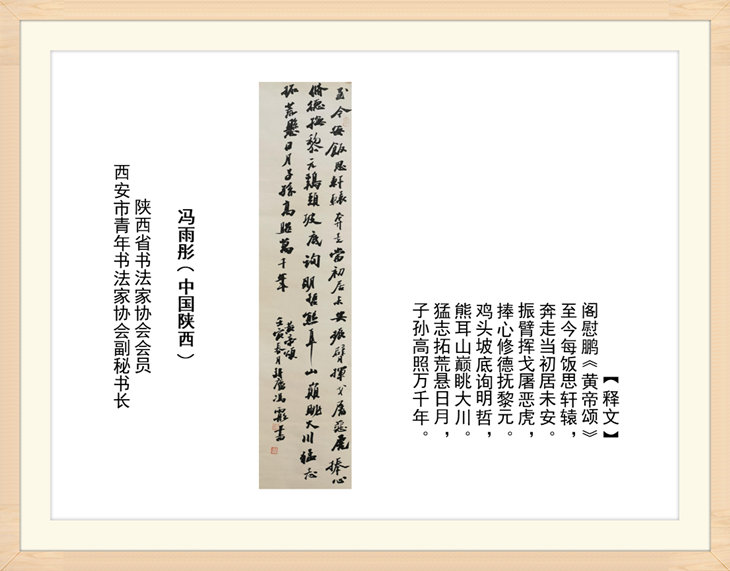 【释文】
阎慰鹏《黄帝颂》
至今每饭思轩辕，
奔走当初居未安。
振臂挥戈屠恶虎，
捧心修德抚黎元。
鸡头坡底询明哲，
熊耳山巅眺大川。
猛志拓荒悬日月，
子孙高照万千年。
至今每飯思軒轅奔走當初居未安振臂揮戈屠惡虎捧心
脩德撫黎元鷄頭坡底詢明哲熊耳山巔眺大川猛志
拓荒懸日月子孫高照萬千年
黄帝頌
壬寅春月
冯雨彤（中国陕西）
陕西省书法家协会会员
西安市青年书法家协会副秘书长